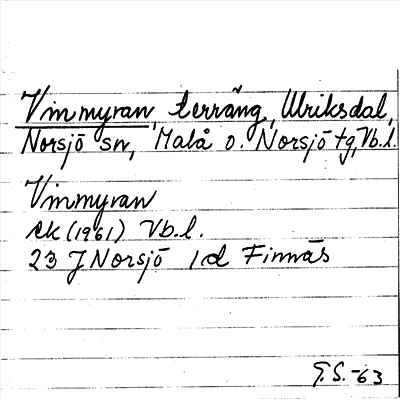 Vinmyran, terräng, Ulriksdal,
Norsjö sn, Malå o. Norsjö tg, Vb.l.
Vinmyran
ek (1961) Vb.l.
23 J Norsjö 1d Finnäs
G.S.-63